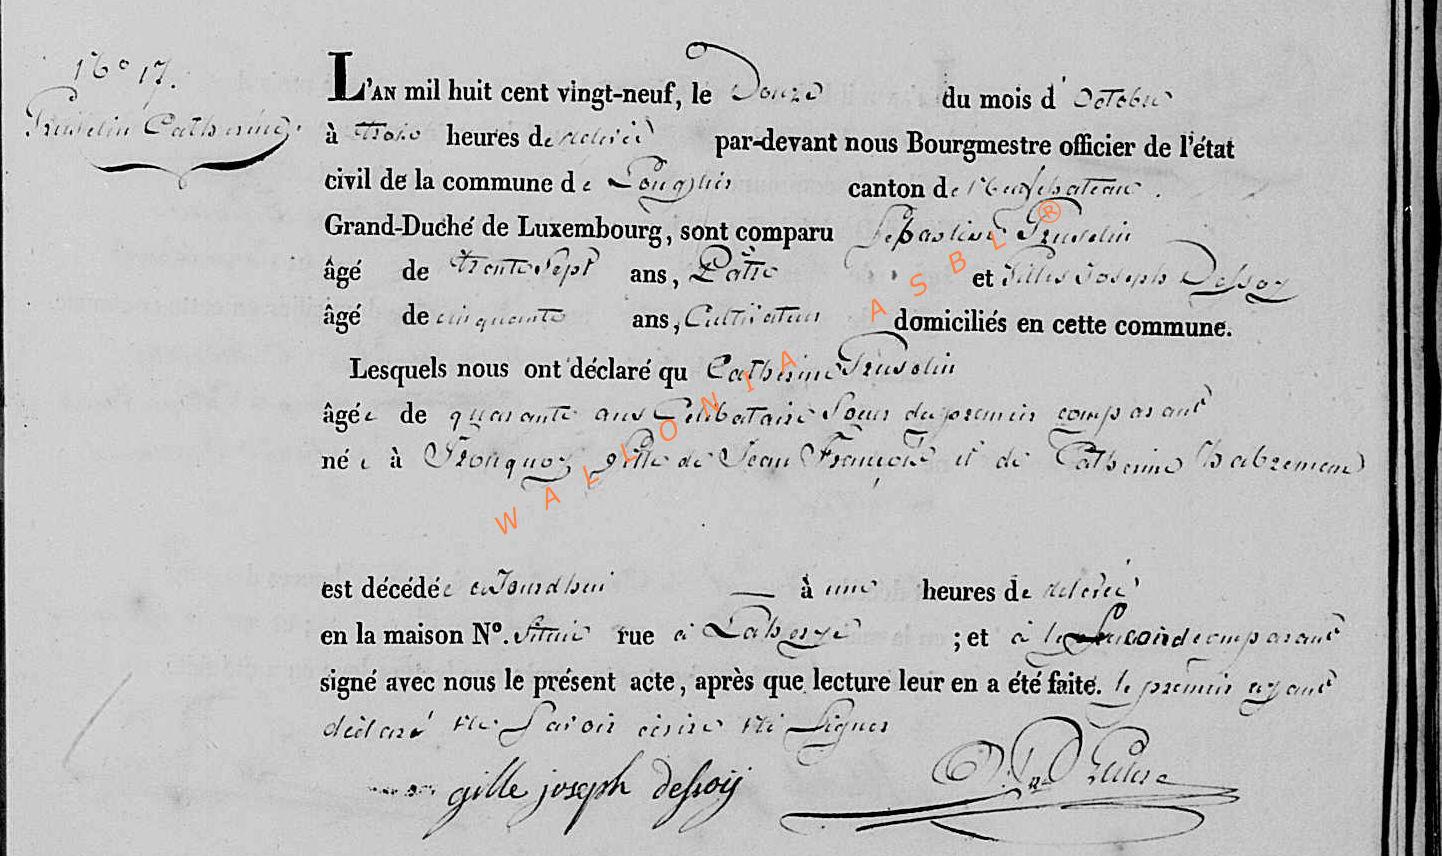 N° 17.
Pruvelin Catherine.
L'AN mil huit cent vingt-neuf, le Douze du mois d'Octobre
à trois heures de relevée par-devant nous Bourgmestre officier de l'état
civil de la commune de Longlier canton de Neufchateau.
Grand-Duché de Luxembourg, sont comparu Sebastien
âgé de trente Sept ans, Pâtre et Gilles Joseph Dessoy
âgé de cinquante ans, Cultivateur domiciliés en cette commune.
Lesquels nous ont déclaré qu Catherine
âgée de quarante ans Celibataire Soeur du premier comparant
née à Tronquoy fille de Jean François et de Catherine
est décédée aujourdhui à une heures de relevée
en la maison N°. Située rue à Laherye ; et à le Second comparant
signé avec nous le présent acte, après que lecture leur en a été faite. le premier ayant
déclaré ne Savoir écrire ni Signer
gille joseph dessoij
WALLONIA ASBL ®